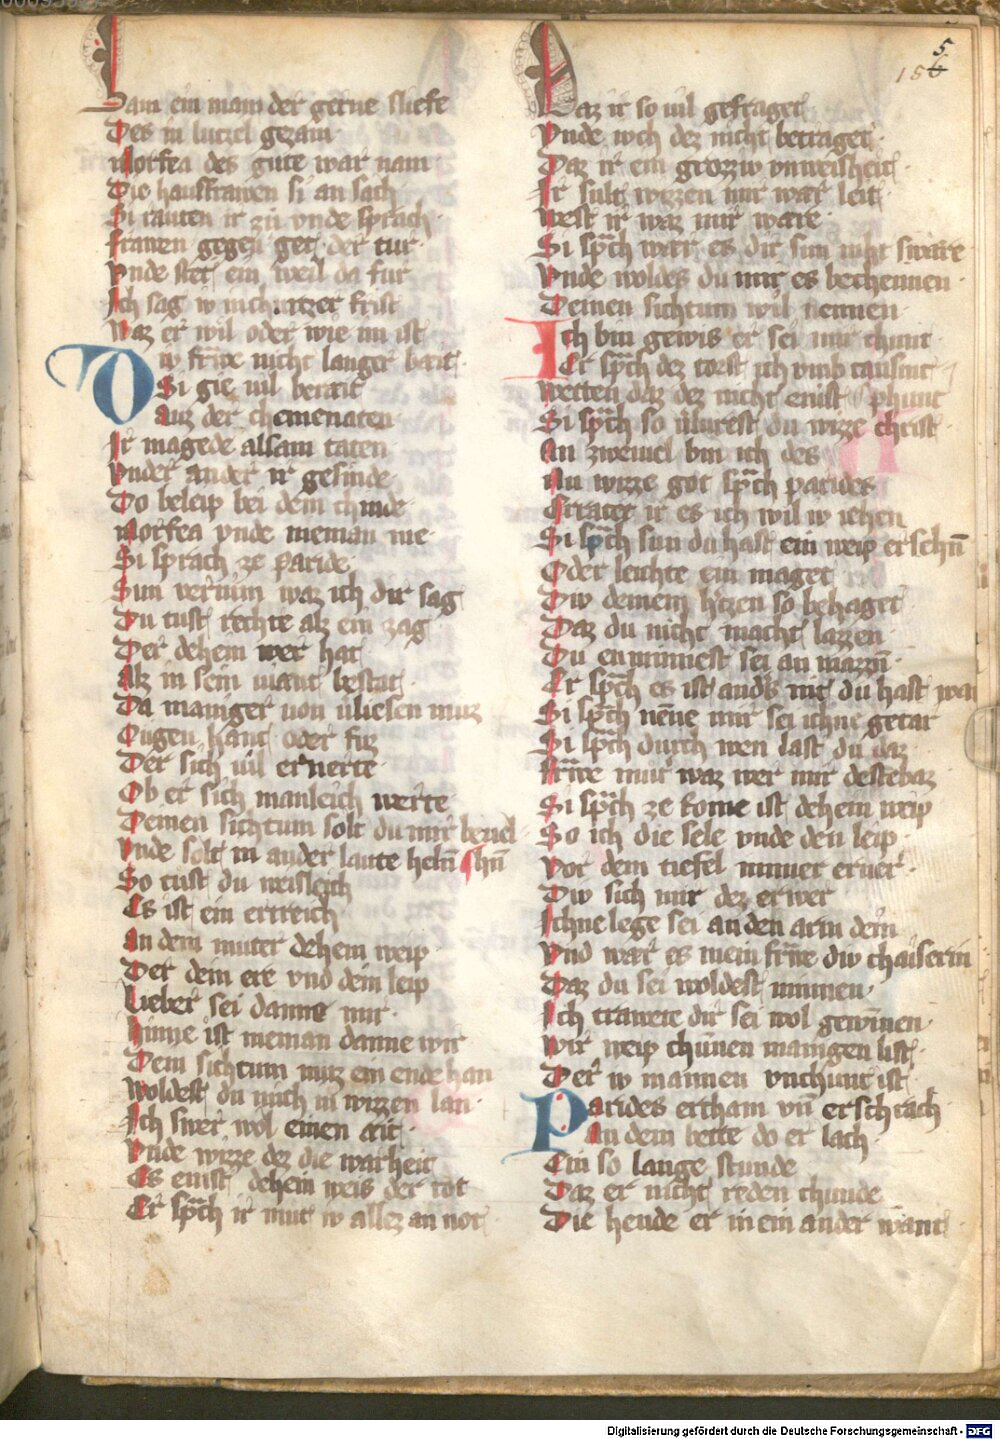 Sam ein man der gerne sliefe
Des in lutzel gezam
Morfea des gute war nam
Die hausfrawen si an sach
Si rauten ir zu vnde sprach
frawen gegen get der tur
Vnde stet ein weil da fur
Ich sag w nich vrzer frist
Waz er wil oder wie im ist
Div friwe nicht langer beit
Si gie vil berait
auz der chemenaten
Ir magede alsam taten
Vnder ander ir gesinde
Do beleip bei dem chinde
Morfea vnde nieman me
Si sprach ze paride
Sun vernim waz ich dir sag
Du tust rechte alz ein zag
Der dehein wer hat
Alz in sein viant bestat
Da maniger von vliesen muz
Ougen hant oder fuz
Der sich vil ernerte
Ob er sich manleich werte
Deinen sichtum solt du mir
Vnde solt in ander laute heln
So tust du weisleich
Es ist ein ertreich
An dem muter dehein weip
Der dein ere vnd dein leip
Lieber sei danne mir
Hinne ist nieman danne wir
Dem sichtum muz ein ende han
Woldest du mich in wizzen lan
Ich swer wol einen ait
Vnde wizze dez die warheit
Es enist dehein weis der tot
Er sp̄ch ir mut w allez an not
Daz ir so vil gefraget
Vnde wch dez nicht betraget
Daz ist ein grozziv vnweisheit
Ir sult wizzen mir war leit
West ir waz mir ware
Si sp̄ch war es dir sun niht sware
Vnde woldes du mir es bechennen
Deinen sichtum wil nennen
Ich bin gewis er sei mir chunt
Er sp̄ch dez torst ich vmb tausent phunt
Wetten daz dez nicht enist
Si sp̄ch so vlurest du wizze christ
An zweiuel bin ich des
Nu wizze got sp̄ch parides
Erratet ir es ich wil w iehen
Si sp̄ch sun du hast ein weip ersehn̄
Oder leichte ein maget
Div deinem h'tzen so behaget
Daz du nicht macht lazzen
Du enminnest sei an mazzn̄
Er sp̄ch es ist and's nit du hast war
Si sp̄ch nēne mir sei ichne getar
Si sp̄ch durch wen last du daz
frīwe mir waz wer mir destebaz
Si sp̄ch ze Rome ist dehein weip
So ich die sele vnde den leip
Vor dem tiefel immer erner
Div sich mir dez erwer
Ichne lege sei an den arm dein
Vnd war es mein frīwe div chaiserin
Daz du sei woldest minnen
Ich trawete dir sei wol gewinnen
Wir weip chunen manigen list
Der w mannen vnchunt ist
Parides ercham vn̄ erschrach
An dem bette do er lach
Ein so lange stunde
Daz er nicht reden chunde
Die hende er in ein ander want
5
156
Digitalisierung gefördert durch die Deutsche Forschungsgemeinschaft - DFG